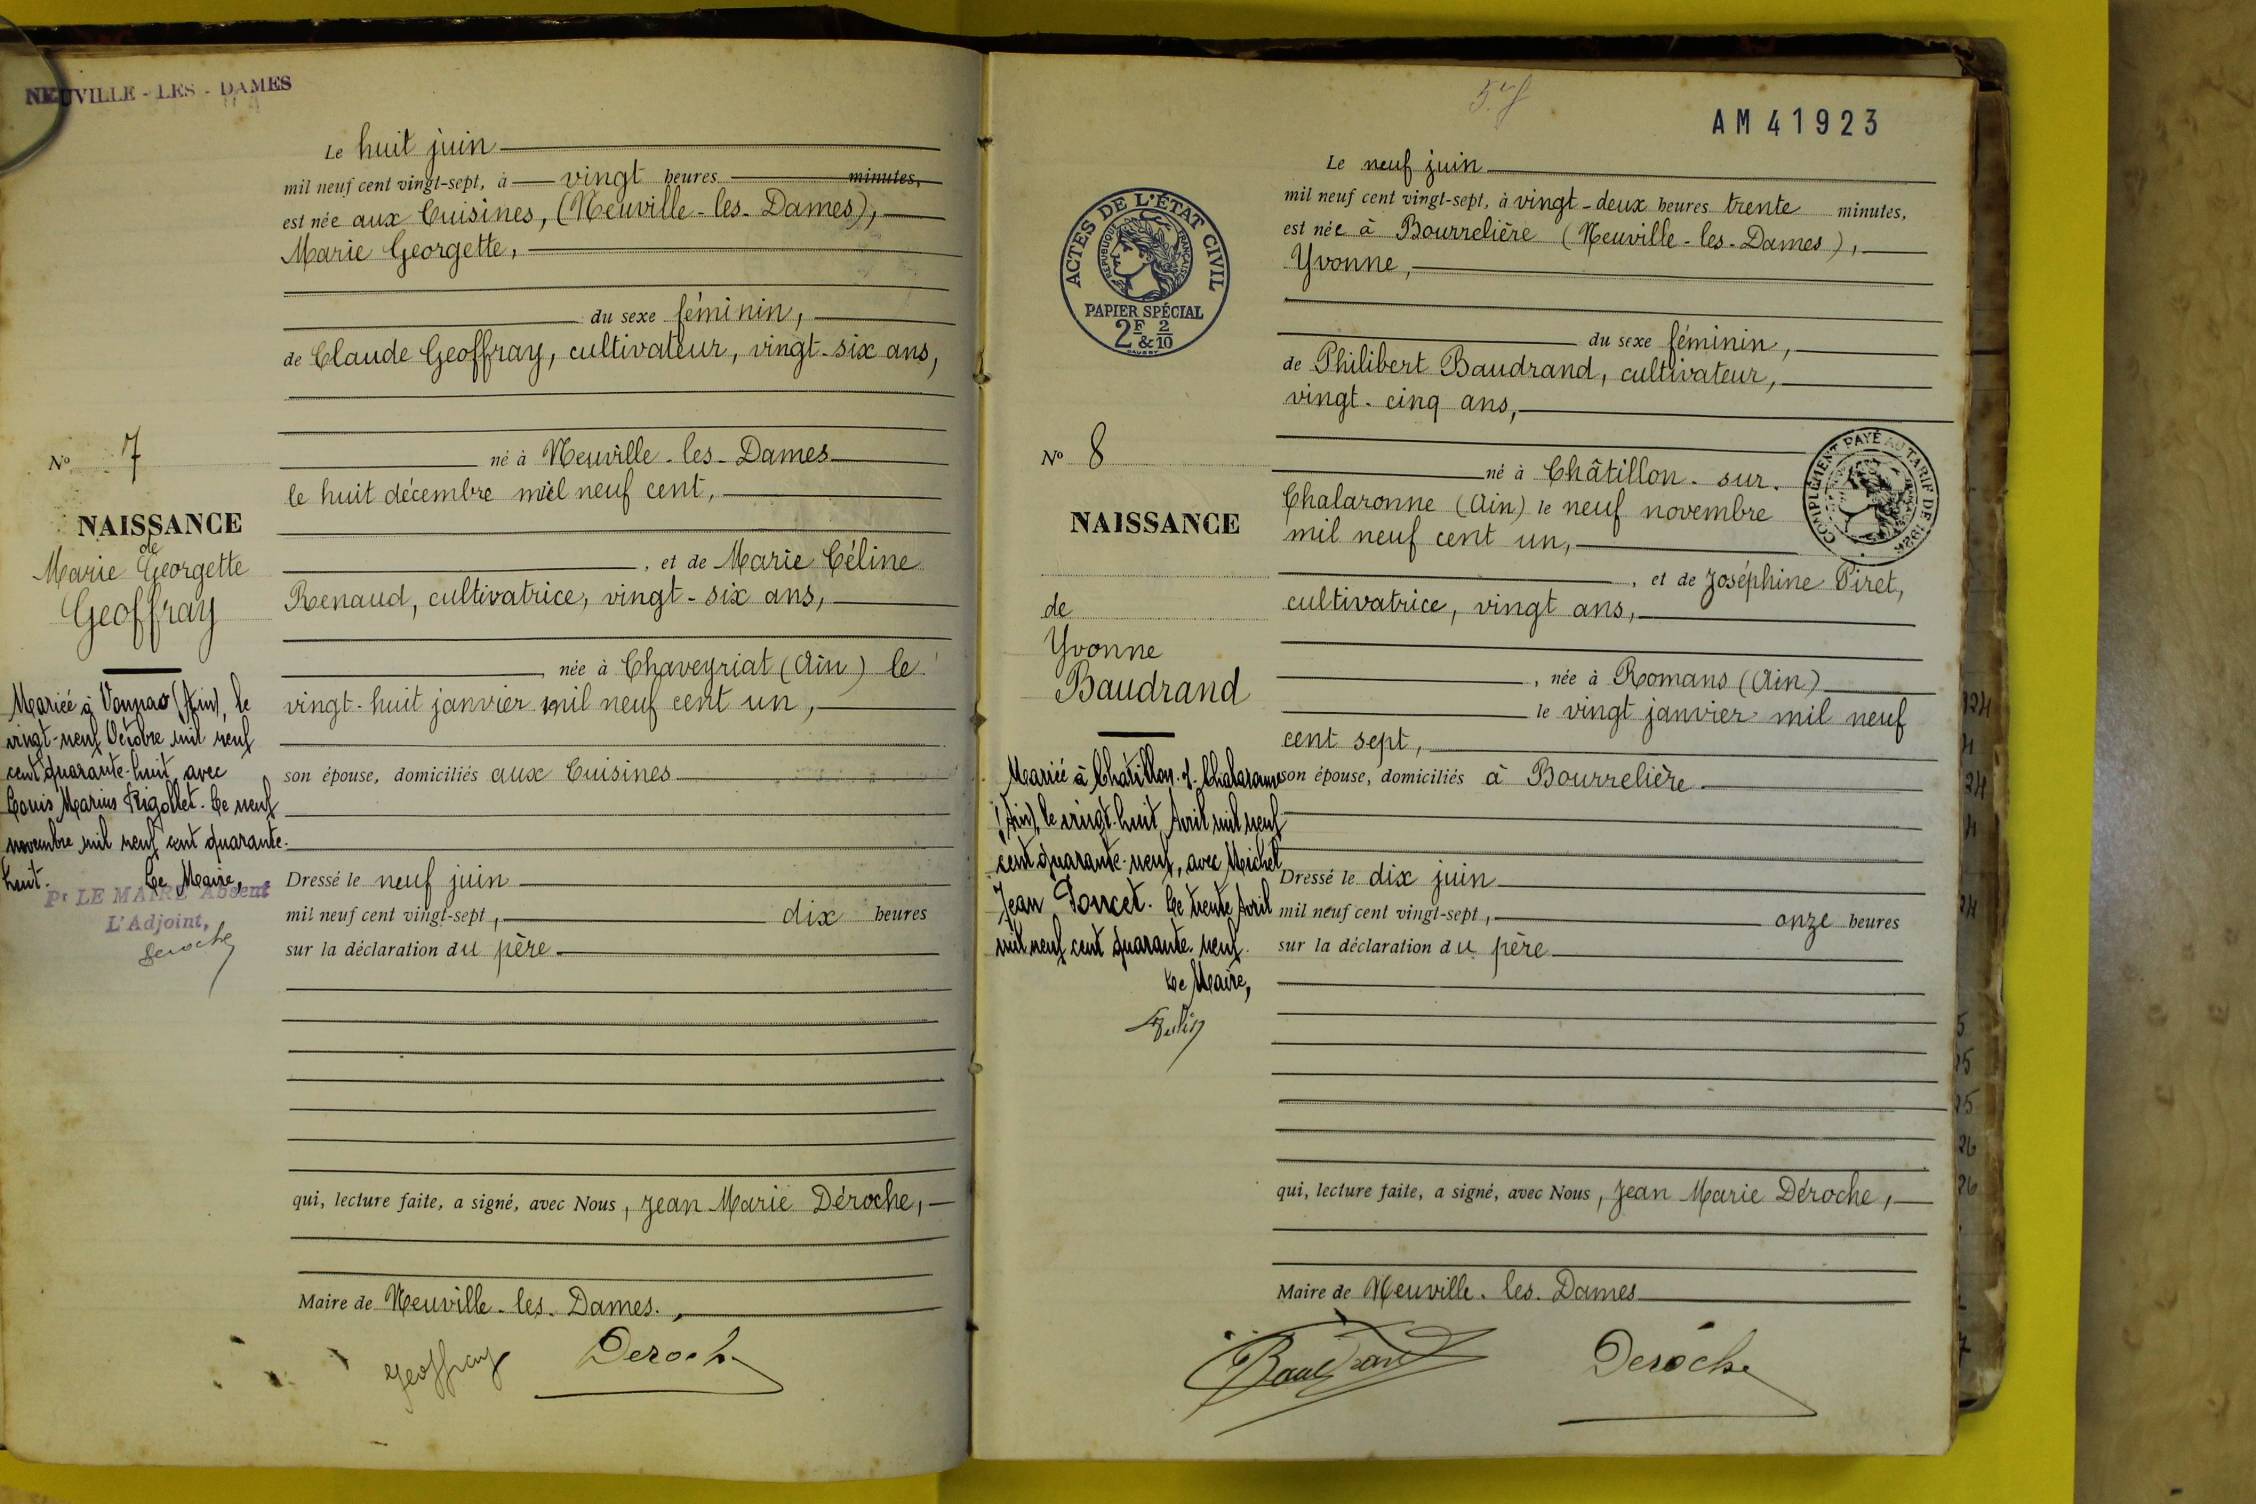 NEUVILLE - LES - DAMES
Le huit juin
mil neuf cent vingt-sept, à vingt heures minutes,
est née aux Cuisines, (Neuville-les-Dames),
Marie Georgette,
du sexe féminin,
de Claude Geoffray, cultivateur, vingt-six ans,
né à Neuville-les-Dames
le huit décembre mil neuf cent,
, et de Marie Céline
Renaud, cultivatrice, vingt-six ans,
, née à Chaveyriat (Ain) le
vingt-huit janvier mil neuf cent un,
son épouse, domiciliés aux Cuisines
Dressé le neuf juin
mil neuf cent vingt-sept, dix heures
sur la déclaration du père
qui, lecture faite, a signé, avec Nous, Jean Marie Déroche,
Maire de Neuville-les-Dames.,
Geoffray Deroche
N° 7
NAISSANCE
de
Marie Georgette
Geoffray
Mariée à Vonnas (Ain), le
vingt-neuf Octobre mil neuf
cent quarante-huit avec
Louis Marius Rigollet. Le neuf
novembre mil neuf cent quarante-
huit. Le Maire,
Pr LE MAIRE Absent
L'Adjoint,
Deroche
AM 41923
ACTES DE L'ÉTAT CIVIL
RÉPUBLIQUE FRANÇAISE
PAPIER SPÉCIAL
2F & 2/10
Le neuf juin
mil neuf cent vingt-sept, à vingt-deux heures trente minutes,
est née à Bourrelière (Neuville-les-Dames),
Yvonne,
du sexe féminin,
de Philibert Baudrand, cultivateur,
vingt-cinq ans,
né à Châtillon-sur-
Chalaronne (Ain) le neuf novembre
mil neuf cent un,
COMPLÉMENT PAYÉ AU TARIF DE 1926
, et de Joséphine Piret,
cultivatrice, vingt ans,
, née à Romans (Ain)
le vingt janvier mil neuf
cent sept,
son épouse, domiciliés à Bourrelière
Dressé le dix juin
mil neuf cent vingt-sept, onze heures
sur la déclaration du père
qui, lecture faite, a signé, avec Nous, Jean Marie Déroche,
Maire de Neuville-les-Dames
Baudrand Deroche
N° 8
NAISSANCE
de
Yvonne
Baudrand
Mariée à Chatillon-s-Chalaronne
(Ain), le vingt-huit Avril mil neuf
cent quarante-neuf, avec Michel
Jean Poncet. Le trente Avril
mil neuf cent quarante-neuf.
Le Maire,